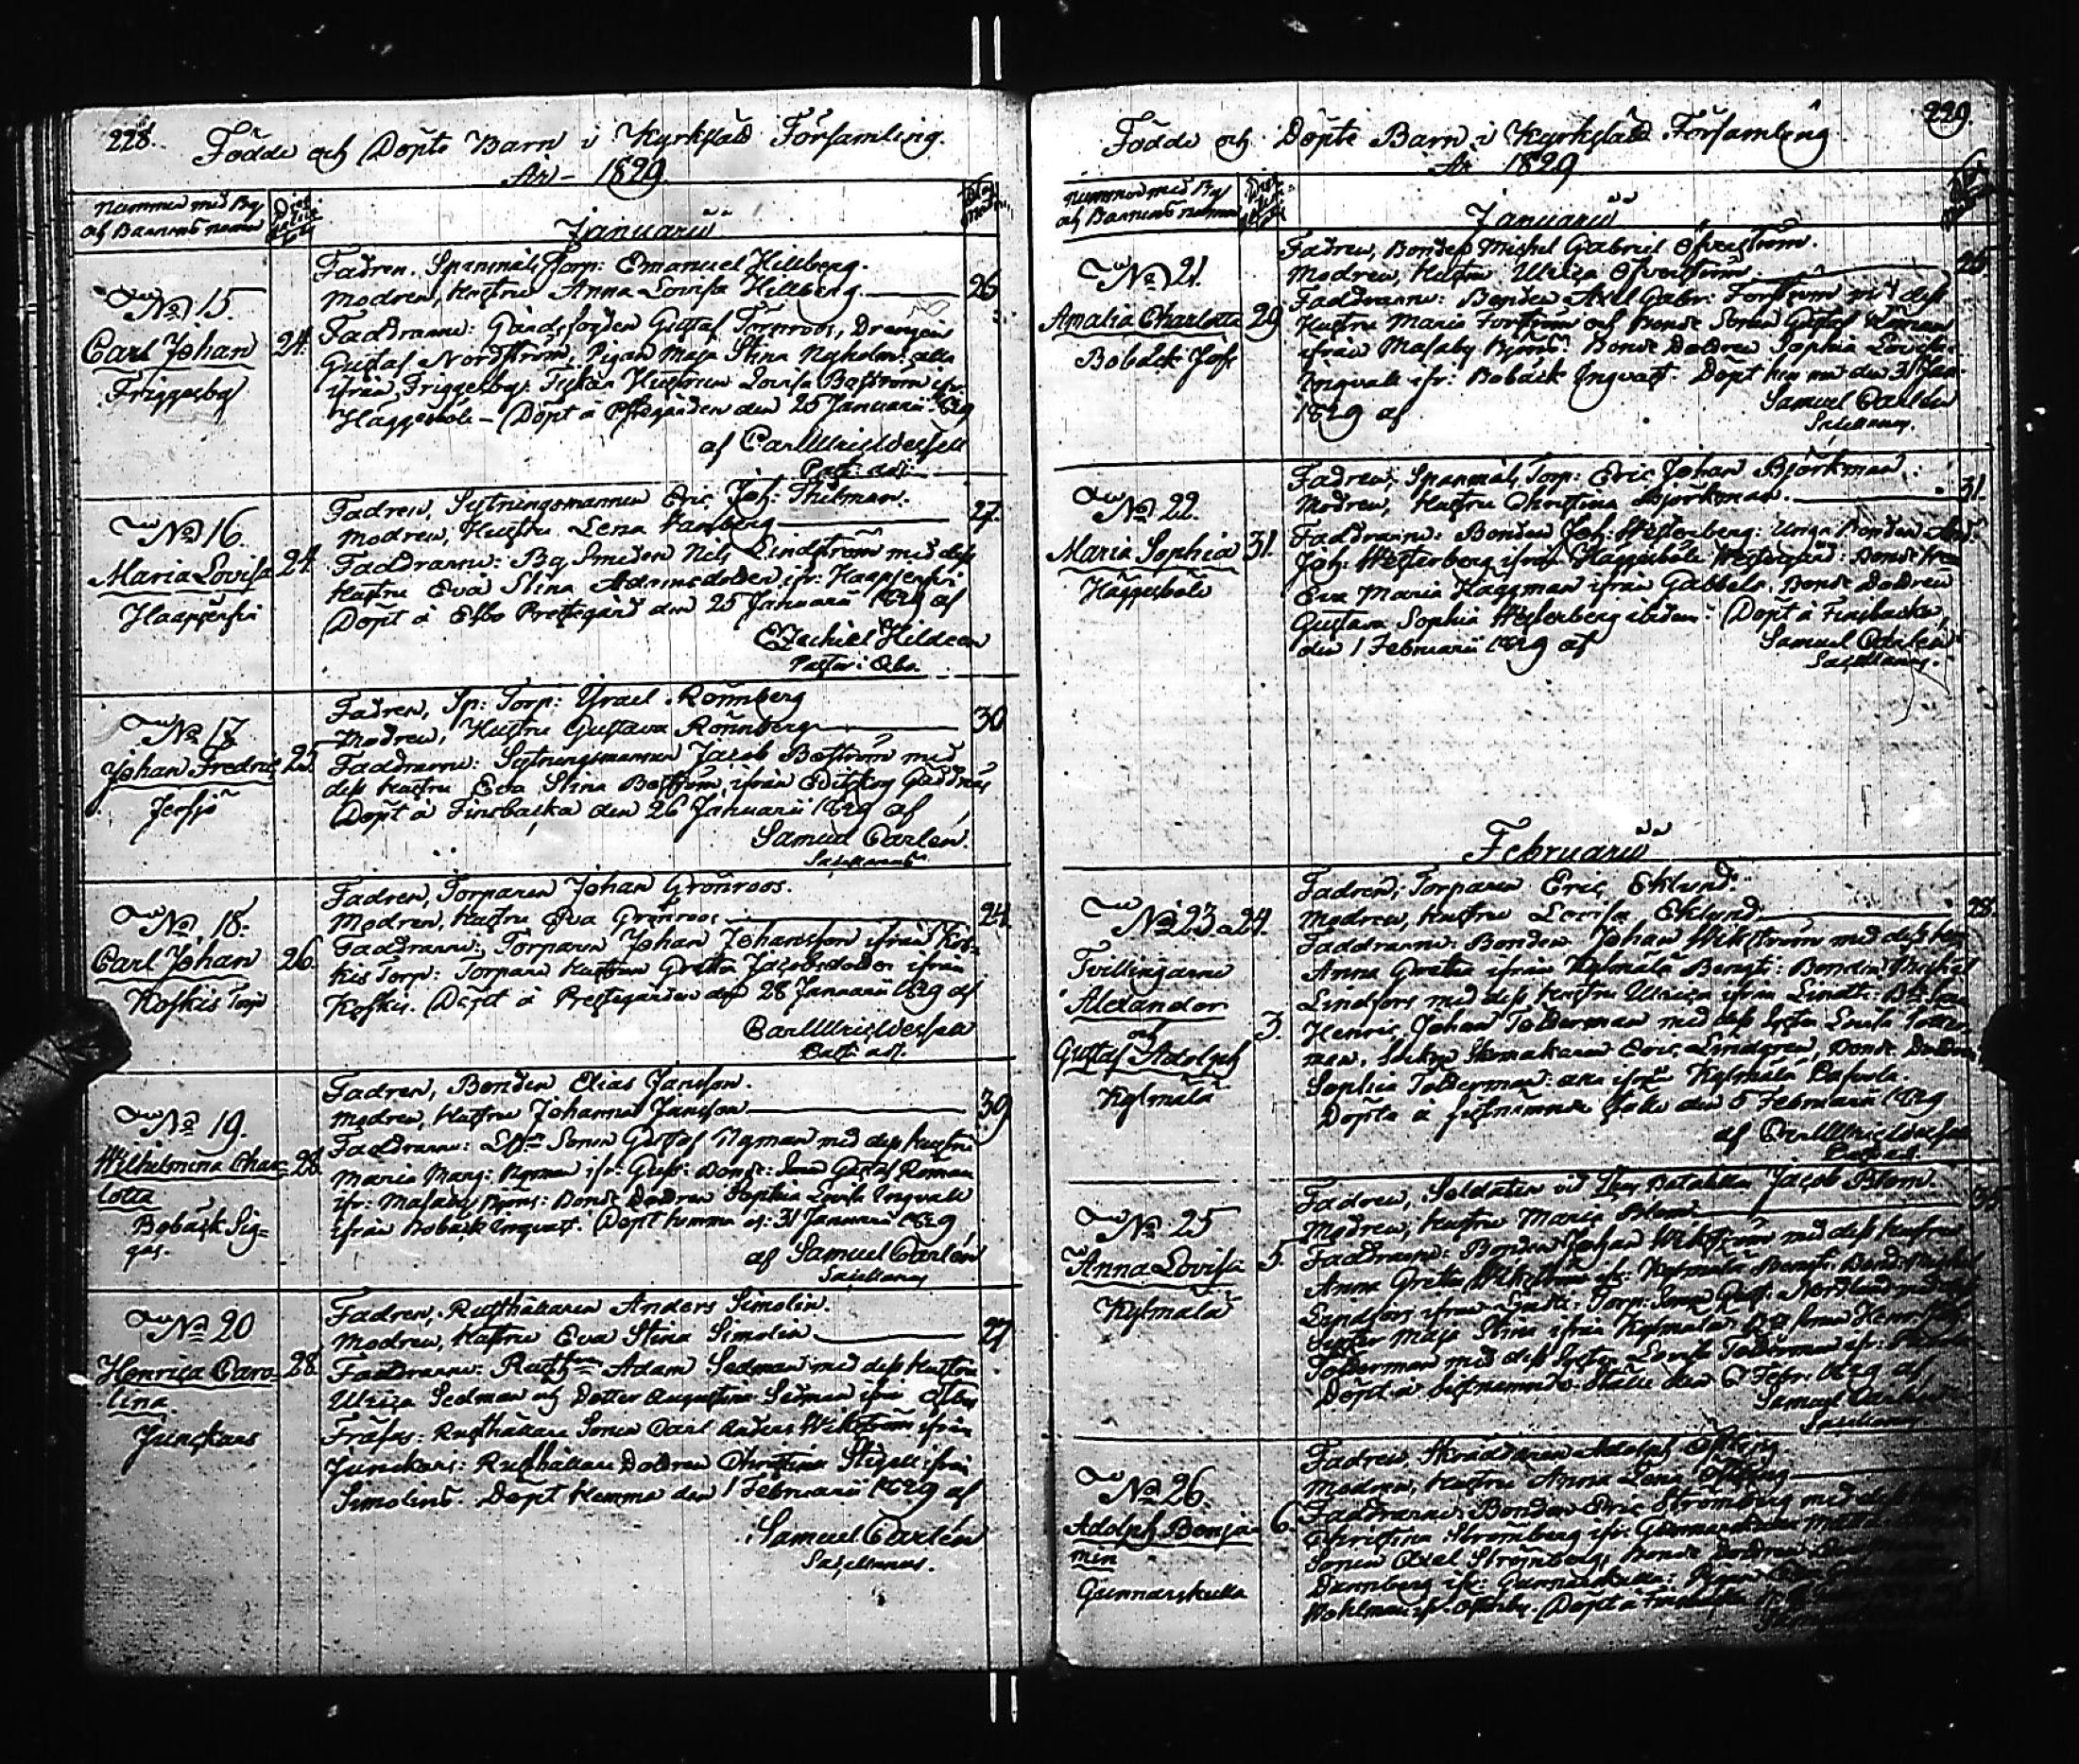 228.
Födde och Döpte Barn i Kyrkslätt Församling.
År 1829.
Nummer med By
och Barnens namn
Januarii
No 15.
Carl Johan
Friggesby
24.
Fadren, Spanmåls Torp: Emanuel Hillberg.
Modren, Hustru Anna Lovisa Hillberg. 26
Faddrarne: Gustaf Törnroos, Drengen
Gustaf Nordström, Pigan Maja Stina Nyholm: alla
ifrån Friggesby: Hustrun Lovisa Boström ifr:
Häggesböle - Döpt å Prestgården den 25 Januarii 1829
af Carl Ulric Wessell
Past: adj:
No 16.
Maria Lovisa
Haapjerfvi
24
Fadren, Sytningsmannen Eric Joh: Thilman.
Modren, Hustru Lena Karlberg 27.
Faddrarne: By Smeden Nils Lindström med dess
Hustru Eva Stina Adamsdotter ifr: Haapjerfvi
Döpt å Esbo Prestegård den 25 Januarii 1829 af
Ezechiel Hildeen
Pastor i Esbo.
No 17
Johan Fredric
Jersjö
25.
Fadren, Sp: Torp: Israel Rönnberg
Modren, Hustru Gustava Rönnberg 30
Faddrarne: Sytningsmannen Jacob Boström med
dess Hustru Eva Stina Boström, ifrån Evitskog Gäddnäs
Döpt å Finsbacka den 26 Januarii 1829 af
Samuel Carlén.
Sacellanus
No 18.
Carl Johan
Koskis Torp
26.
Fadren, Torparen Johan Grönroos.
Modren, Hustru Eva Grönroos 24
Faddrarne: Torparen Johan Johansson ifrån Kos-
kis Torp: Torpare Hustrun Greta Jacobsdotter ifrån
Koskis. Döpt å Prestegården den 28 Januarii 1829 af
Carl Ulric Wessell
Past: adj.
No 19.
Wilhelmina Char-
lotta
Bobäck Sig-
gas.
28.
Fadren, Bonden Elias Jansson.
Modren, Hustru Johanna Jansson 39
Faddrarne: Sonen Gustaf Nyman med dess Hustru
Maria Marg: Nyman ifr: Bonde: Sonen Gustaf Roman
ifr: Masaby Björns: Bonde Dottren Sophia Lovisa Ingvall
ifrån Bobäck Ingvast. Döpt hemma d: 31 Januarii 1829,
af Samuel Carlén
Sacellanus
No 20
Henrica Caro-
lina.
Junckars
28.
Fadren, Rusthållaren Anders Simolin.
Modren, Hustru Eva Stina Simolin 27
Faddrarne: Adam Sedman med dess Hustru
Ulrica Sedman och Dotter Augustina Sedman ifrån
Rusthållare Sonen Carl Anders Wikström ifrån
Junckars: Rusthållare Dottren Christina Stigell ifrån
Simolins. Döpt Hemma den 1 Februarii 1829 af
Samuel Carlén
Sacellanus.
229.
Födde och Döpte Barn i Kyrkslätt Församling
År 1829
Nummer med By
och Barnens namn
Januarii
No 21.
Amalia Charlotta
Bobäck Jofs
29
Fadren, Bonden Michel Gabriel Öfverström.
Modren, Hustru Ulrica Öfverström 25
Faddrarne: Bonden Axel Gabr: Forsström med dess
Hustru Maria Forsström och Bonde Sonen Gustaf Roman
ifrån Masaby Björns: Bonde Dottren Sophia Lovisa
Ingvall ifr: Bobäck Ingvast. Döpt hemma den 31 Jan.
1829 af Samuel Carlén
Sacellanus.
No 22.
Maria Sophia
Häggesböle
31.
Fadren, Spanmåls Torp: Eric Johan Björkman.
Modren, Hustru Christina Björkman. 31.
Faddrarne: Bonden Joh: Westerberg: Unga Bonden And:
Joh: Westerberg ifrån Häggesböle Westergård: Bonde
Eva Maria Häggman ifrån Gabbels. Bonde Dottren
Gustava Sophia Westerberg ibidem: Döpt å Finsbacka,
den 1 Februarii 1829 af Samuel Carlén
Sacellanus.
Februarii
No 23 o 24.
Tvillingarne
Alexander
och
Gustaf Adolph
Kylmälä
3.
Fadren, Torparen Eric Eklund.
Modren, Hustru Lovisa Eklund 28.
Faddrarne: Bonden Johan Wikström med dess
Anna Greta ifrån Kylmälä Bengts: Bonden Michel
Lindfors med dess Hustru Ulrica ifrån
Henric Johan Tolderman med dess Syster Lovisa
Skomakaren Eric Lindgren, Bonde Dottren
Sophia Tolderman: alla ifrån Kylmälä
Döpta å sistnämnde ställe den 5 Februarii 1829
af Carl Ulric Wessell
No 25
Anna Lovisa
Kylmälä
5.
Fadren, Soldaten vid Batallion Jacob Blom.
Modren, Hustru Maria Blom
Faddrarne: Bonden Johan Wikström med dess Hustru
Anna Greta Wikström ifr: Kylmälä Bengts: Bonden Michel
Lindfors ifrån Torp: Sonen Nordlund med dess
Syster Maja Stina ifrån Kylmälä: Sonen Henr: Joh:
Tolderman med dess Syster Lovisa Tolderman ifr:
Döpt å sistnämnde ställe den Febr: 1829 af
Samuel Carlén
Sacellanus
No 26.
Adolph Benja-
min
Gunnarskulla
6.
Fadren, Skräddaren Adolph
Modren, Hustru Anna Lena
Faddrarne: Bonden Eric Strömberg med dess
Christina Strömberg ifr: Gunnarskulla
Sonen Axel Strömberg, Bonde Dottren
Dannberg ifr: Gunnarskulla:
Döpt å